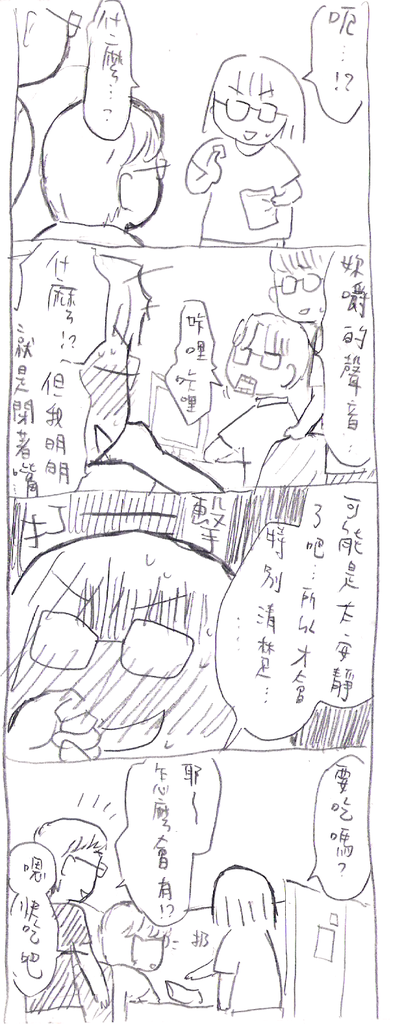 呃…!?
什麼…?
妳嚼的聲音…
咔哩
咔哩
什麼!?
但我明明
就是閉著嘴
可能是太安靜
了吧…所以才會
特別清楚…
……
打擊
要吃嗎?
耶~
怎麼會有!?
嗯
快吃吧